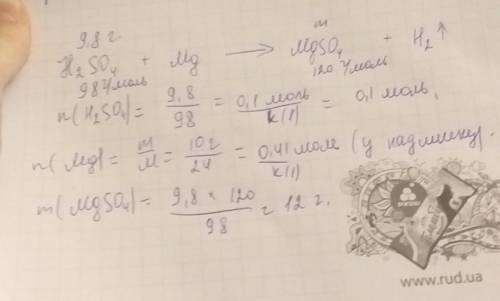 9,8 г.   m
H₂SO₄ + Mg → MgSO₄ + H₂↑
98 г/моль   120 г/моль
n(H₂SO₄) = 9,8/98 = 0,1 моль/k(1) = 0,1 моль,
n(Mg) = m/M = 10 г/24 = 0,41 моль/k(1) (у надлишку)
m(MgSO₄) = 9,8 × 120/98 = 12 г.
www.rud.ua